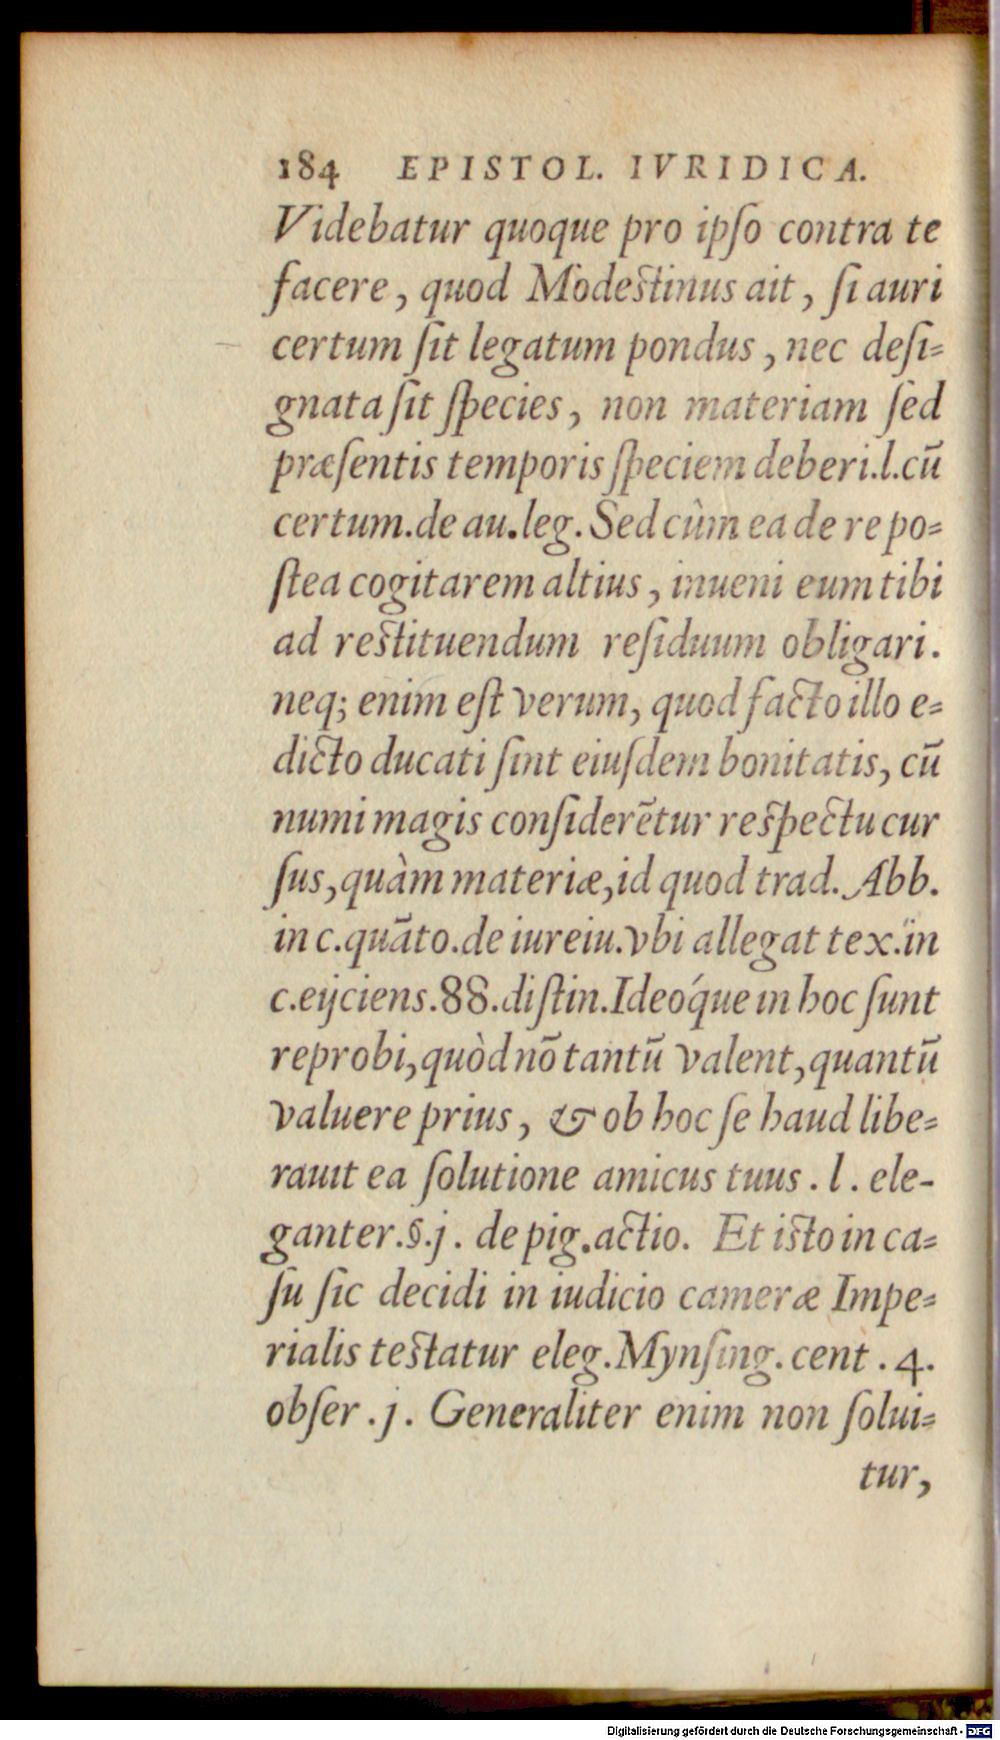 184 EPISTOL. IVRIDICA.
Videbatur quoque pro ipſo contra te
facere, quod Modestinus ait, ſi auri
certum ſit legatum pondus, nec deſi-
gnata ſit ſpecies, non materiam ſed
præſentis temporis ſpeciem deberi.l.cū
certum.de au.leg. Sed cùm ea de re po-
ſtea cogitarem altius, inueni eum tibi
ad restituendum reſiduum obligari.
neq; enim eſt verum, quod facto illo e-
dicto ducati ſint eiuſdem bonitatis, cū
numi magis conſiderētur respectu cur
ſus, quàm materiæ, id quod trad. Abb.
in c.quāto.de iureiu.vbi allegat tex. in
c.eijciens.88.diſtin.Ideóque in hoc ſunt
reprobi, quòd nō tantū valent, quantū
valuere prius, & ob hoc ſe haud libe-
rauit ea ſolutione amicus tuus. l. ele-
ganter.§.j. de pig.actio. Et isto in ca-
ſu ſic decidi in iudicio cameræ Impe-
rialis testatur eleg.Mynſing. cent. 4.
obſer. j. Generaliter enim non ſolui-
tur,
Digitalisierung gefördert durch die Deutsche Forschungsgemeinschaft - DFG